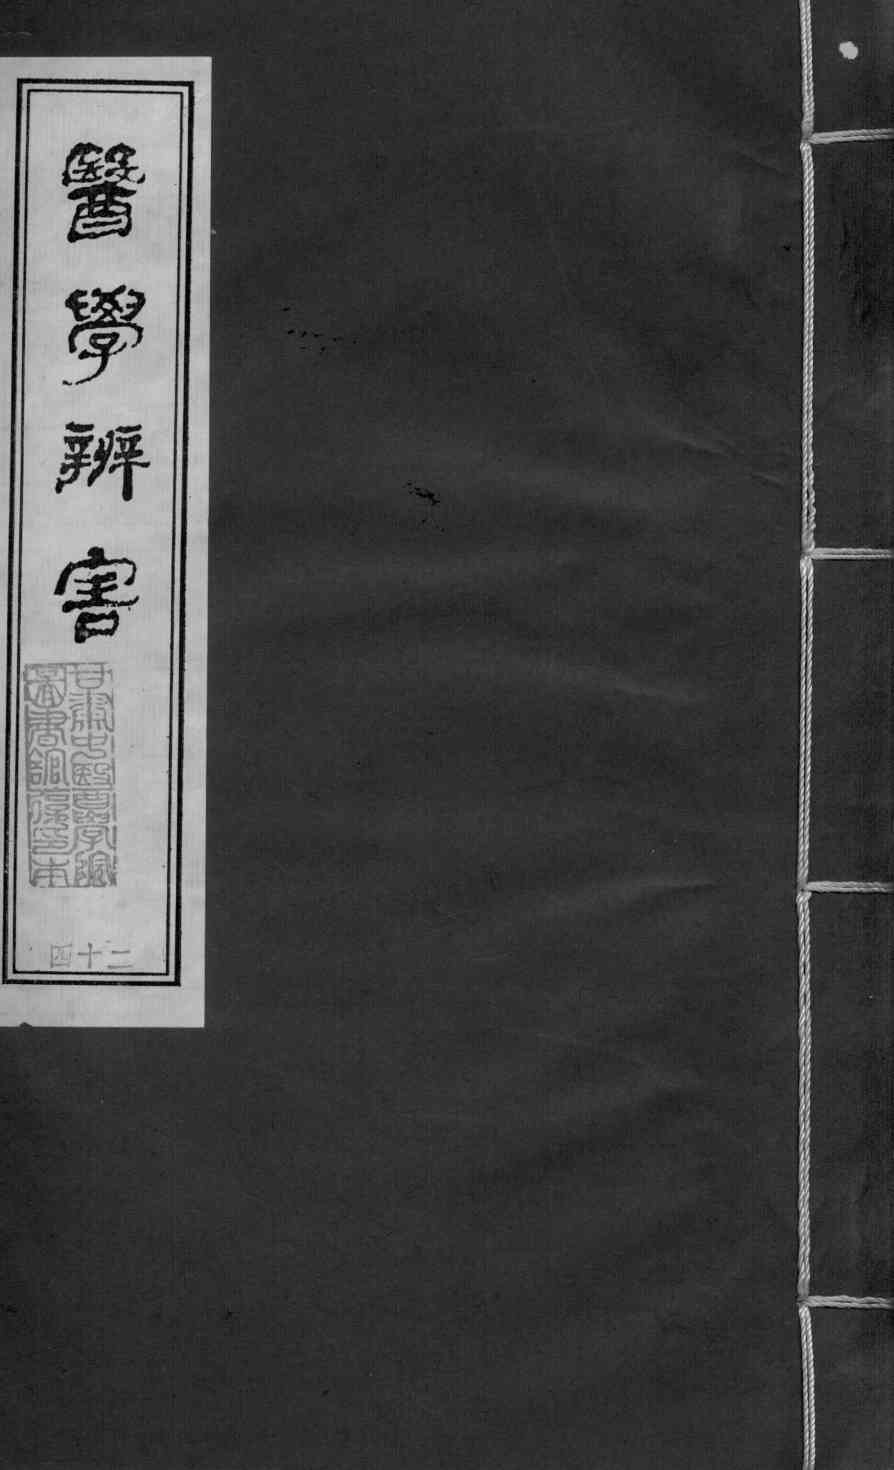 醫學辨害
甘肅中醫學院
圖書館復印本
二十四